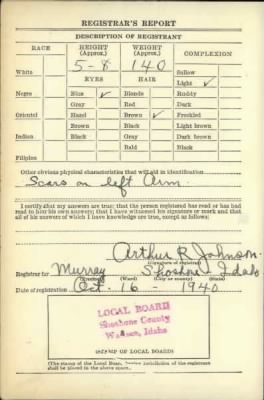 REGISTRAR'S REPORT
DESCRIPTION OF REGISTRANT
RACE HEIGHT (Approx.) WEIGHT (Approx.) COMPLEXION
5-8 140
White Sallow
EYES HAIR Light ✓
Negro Blue ✓ Blonde Ruddy
Gray Red Dark
Oriental Hazel Brown ✓ Freckled
Brown Black Light brown
Indian Black Gray Dark brown
Bald Black
Filipino
Other obvious physical characteristics that will aid in identification
Scars on left Arm
I certify that my answers are true; that the person registered has read or has had
read to him his own answers; that I have witnessed his signature or mark and that
all of his answers of which I have knowledge are true, except as follows:
Arthur R. Johnson
(Signature of registrar)
Registrar for Murray Shoshone Idaho
(Ward) (City or county) (State)
Date of registration Oct. 16 - 1940
LOCAL BOARD
Shoshone County
Wallace, Idaho
(STAMP OF LOCAL BOARD)
(The stamp of the Local Board having jurisdiction of the registrant
shall be placed in the above space.)